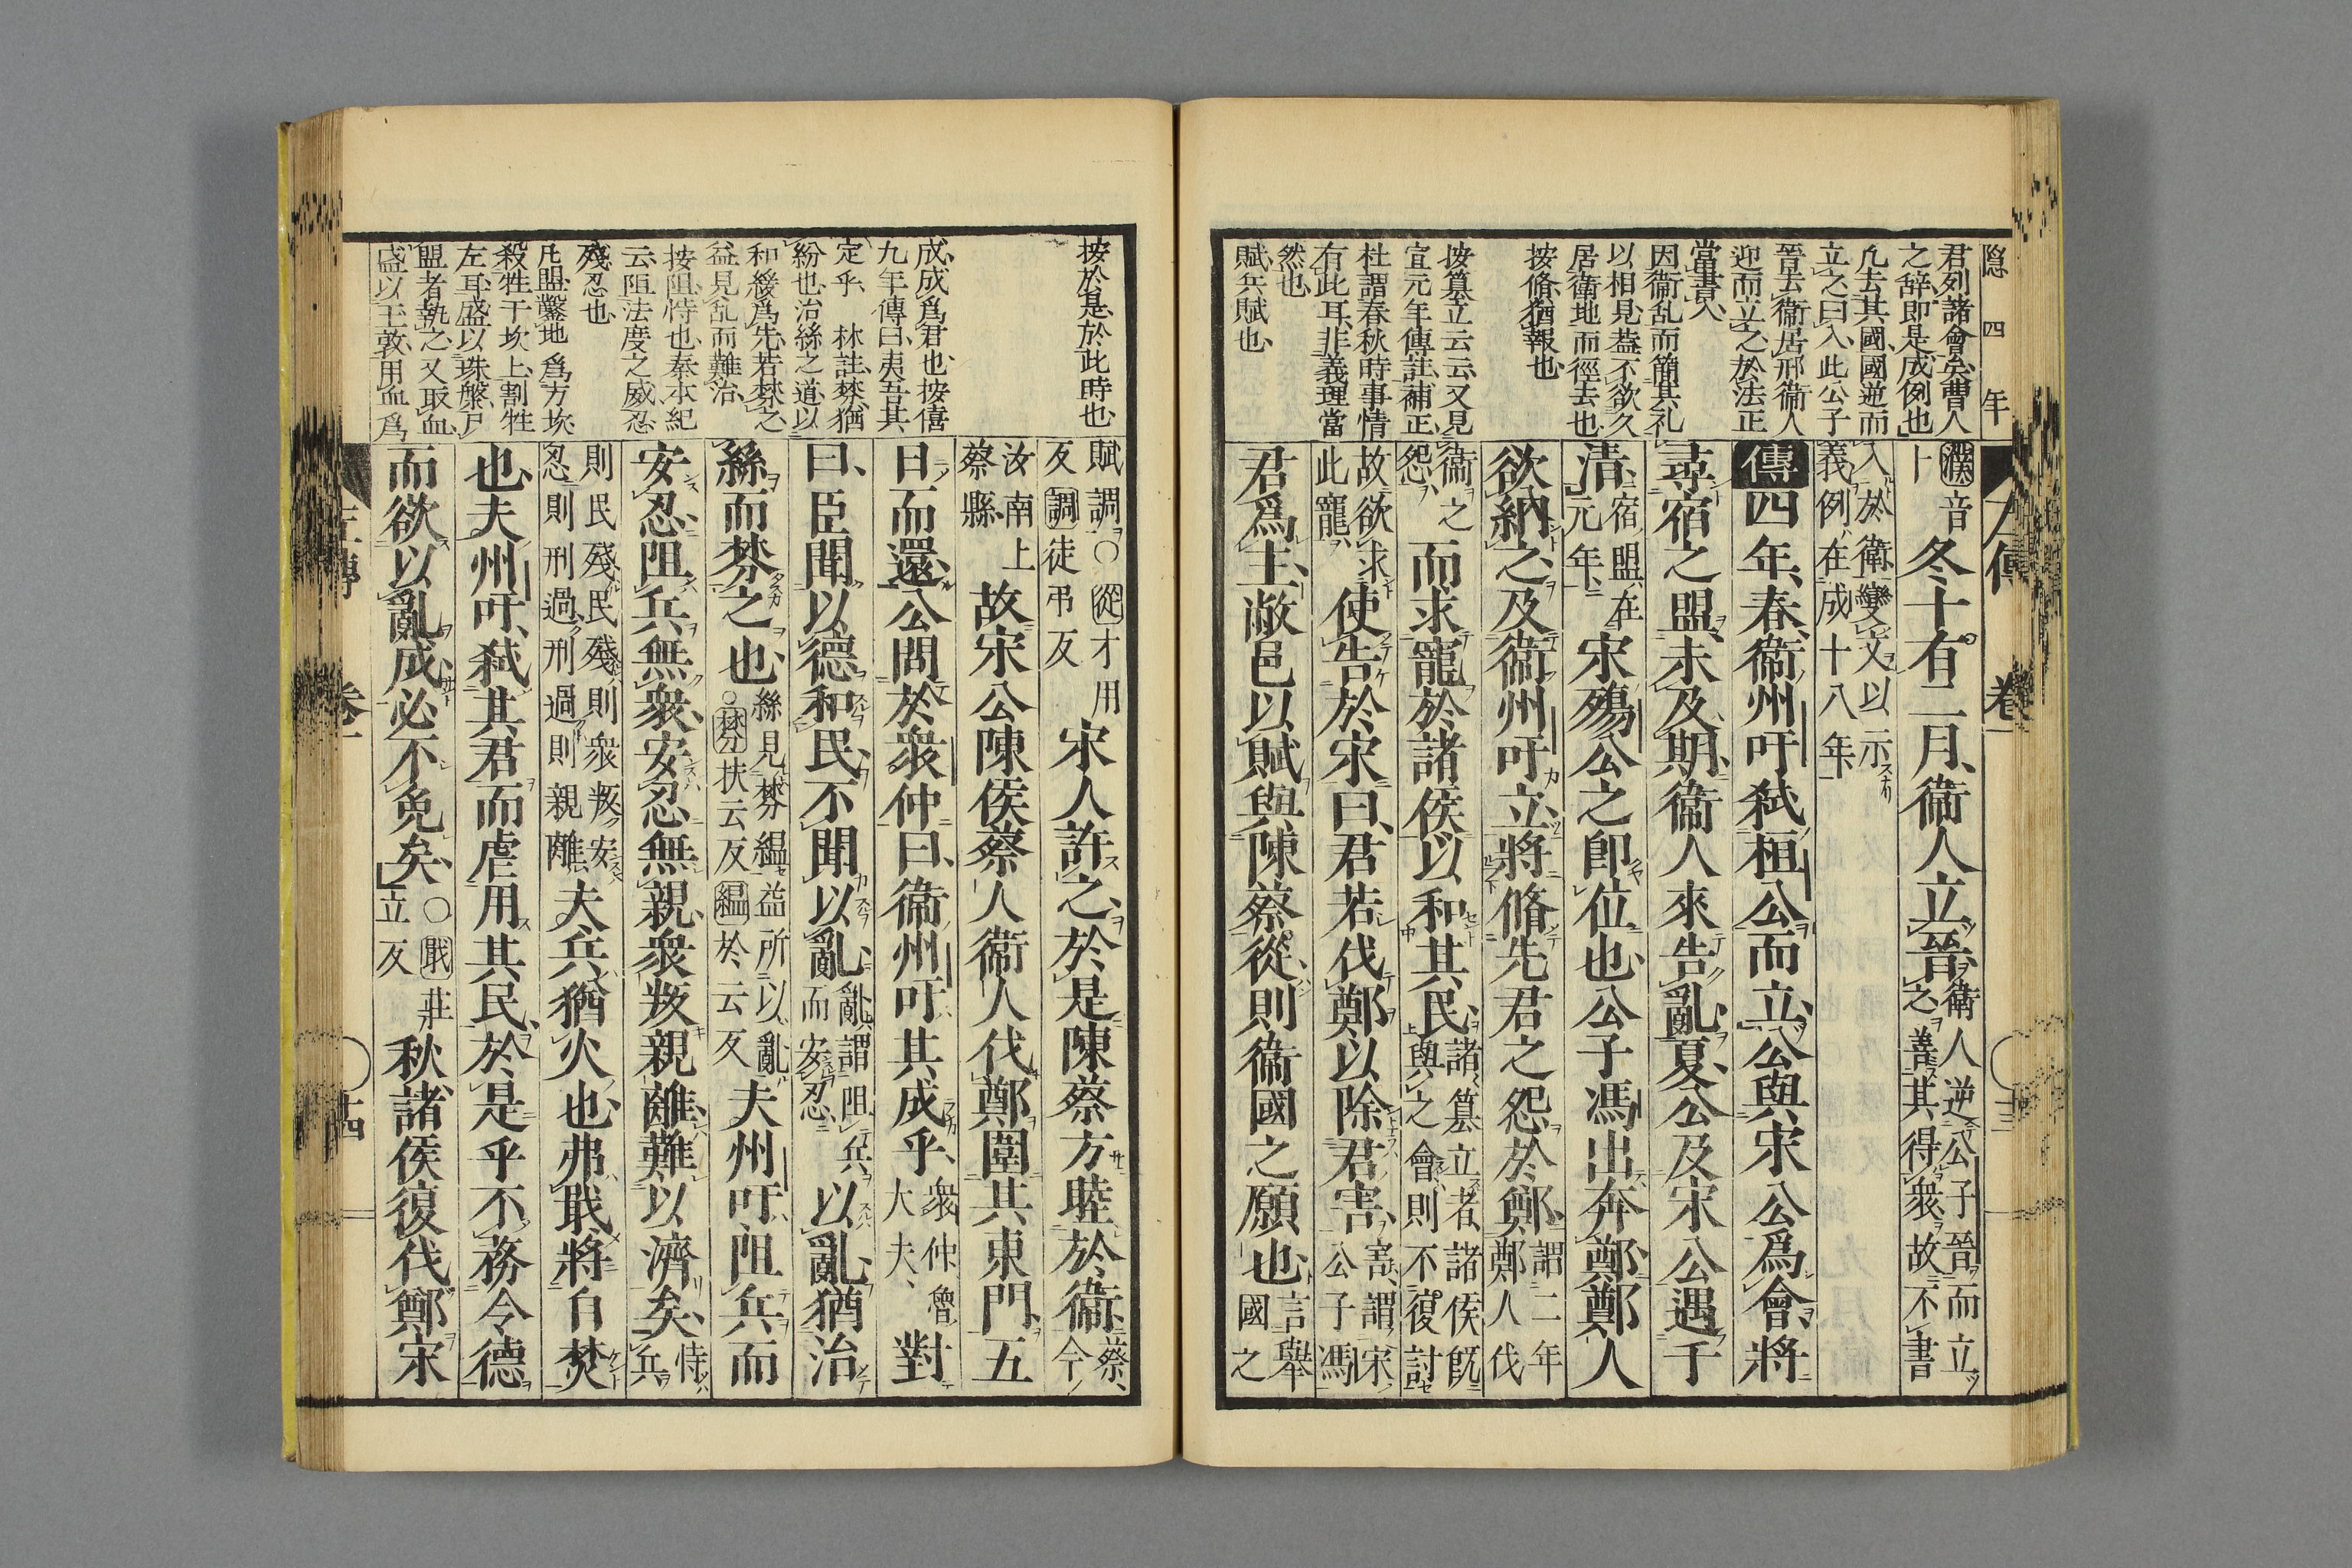 隱四年
君列諸會矣曹人
之辭即是成例也
凢去其國國逆而
立之曰入此公子
晉去衞居邢衞人
迎而立之於法正
當書入
因衞乱而簡其礼
以相見葢不欲久
居衞地而徑去也
按脩猶報也
按篡立云云又見
宣元年傳註補正
杜謂春秋時事情
有此耳非義理當
然也
賦兵賦也
濮音卜冬十有二月衞人立晉衞人逆公子晉而立之善其得衆故不書
入於衞變文以示義例在成十八年
傳四年春衞州吁弑桓公而立公與宋公爲會將
尋宿之盟未及期衞人來告亂夏公及宋公遇于
清宿盟在元年宋殤公之即位也公子馮出奔鄭鄭人
欲納之及衞州吁立將脩先君之怨於鄭謂二年鄭人伐
衞之怨而求寵於諸侯以和其民諸篡立者諸侯旣與之會則不復討
故欲求此寵使告於宋曰君若伐鄭以除君害害謂宋公子馮
君爲主敝邑以賦與陳蔡從則衞國之願也言舉國之
按於是於此時也
成成爲君也按僖
九年傳曰夷吾其
定乎林註棼猶
紛也治絲之道以
和緩爲先若棼之
益見乱而難治
按阻恃也秦本紀
云阻法度之威忍
殘忍也
凡盟鑿地爲方坎
殺牲于坎上割牲
左耳盛以珠槃尸
盟者執之又取血
盛以玉敦用血爲
賦調○從才用反調徒弔反宋人許之於是陳蔡方睦於衞蔡今
汝南上蔡縣故宋公陳侯蔡人衞人伐鄭圍其東門五
日而還公問於衆仲曰衞州吁其成乎衆仲魯大夫對
曰臣聞以德和民不聞以亂亂謂阻兵而安忍以亂猶治
絲而棼之也絲見棼緼益所以亂○棼扶云反緼於云反夫州吁阻兵而
安忍阻兵無衆安忍無親衆叛親離難以濟矣恃兵
則民殘民殘則衆叛安忍則刑過刑過則親離夫兵猶火也弗戢將自焚
也夫州吁弑其君而虐用其民於是乎不務令德
而欲以亂成必不免矣○戢莊立反秋諸侯復伐鄭宋
左傳
卷一
十四